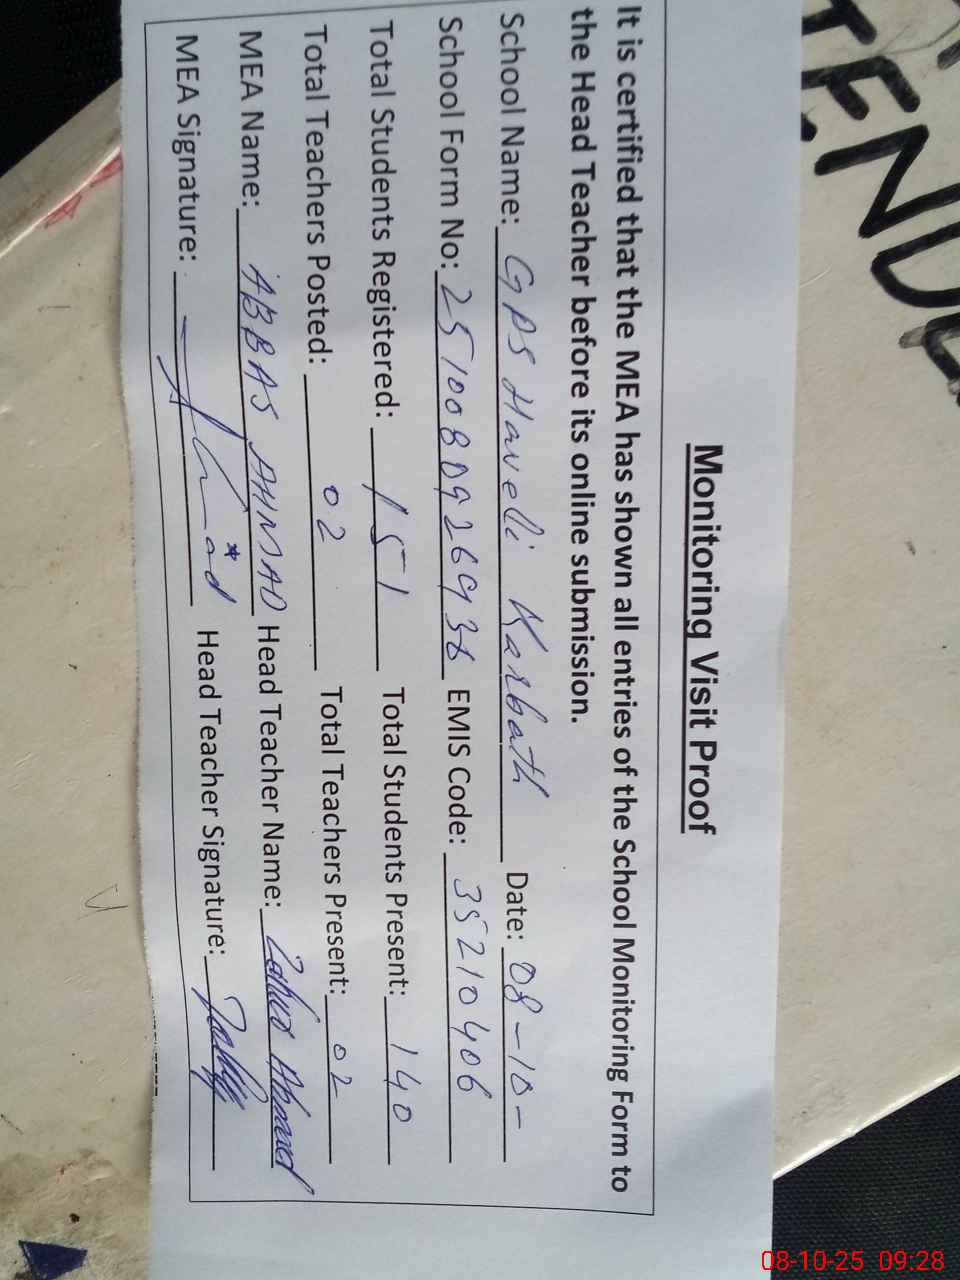 Monitoring Visit Proof
It is certified that the MEA has shown all entries of the School Monitoring Form to
the Head Teacher before its online submission.
School Name: GPS Haveli Karbath Date: 08-10-
School Form No: 251008092693 EMIS Code: 35210406
Total Students Registered: 151 Total Students Present: 140
Total Teachers Posted: 02 Total Teachers Present: 02
MEA Name: ABBAS AHMAD Head Teacher Name: Ahmad
MEA Signature: Head Teacher Signature:
TEND
08-10-25 09:28